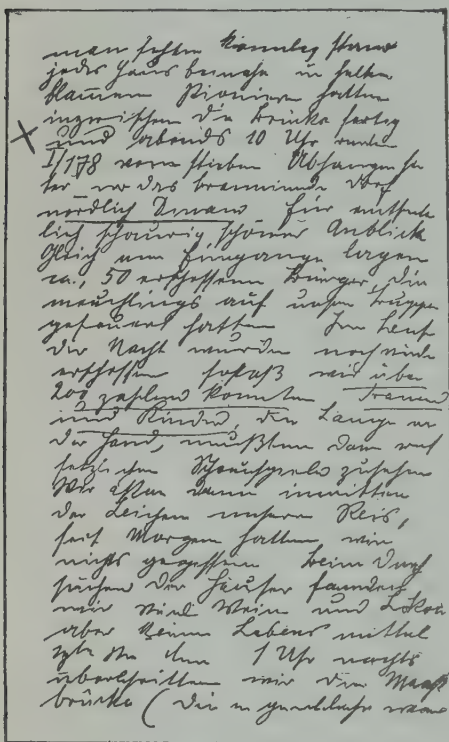 jedes Haus beinahe in hellen
Flammen Pioniere hatten
inzwischen die Brücke fertig
und abends 10 Uhr
I/178 den steilen Abhang
ter in das brennende Dorf
nördlich Dinant Ein entsetz
lich schaurig schöner Anblick
Gleich am Eingange lagen
ca. 50 erschossene Bürger, die
meuchlings auf unsere Truppen
gefeuert hatten Im Laufe
der Nacht wurden noch viele
erschossen sodaß wir über
200 zählen konnten Frauen
und Kinder, die Lampe in
der Hand, mußten dem ent
setzlichen Schauspiele zusehen
Wir aßen dann inmitten
der Leichen unsern Reis,
seit Morgen hatten wir
nichts gegessen Beim Durch
suchen der Häuser fanden
wir viel Wein und Likör
aber keine Lebensmittel
1 Uhr nachts
überschritten wir die Maas
brücke (die